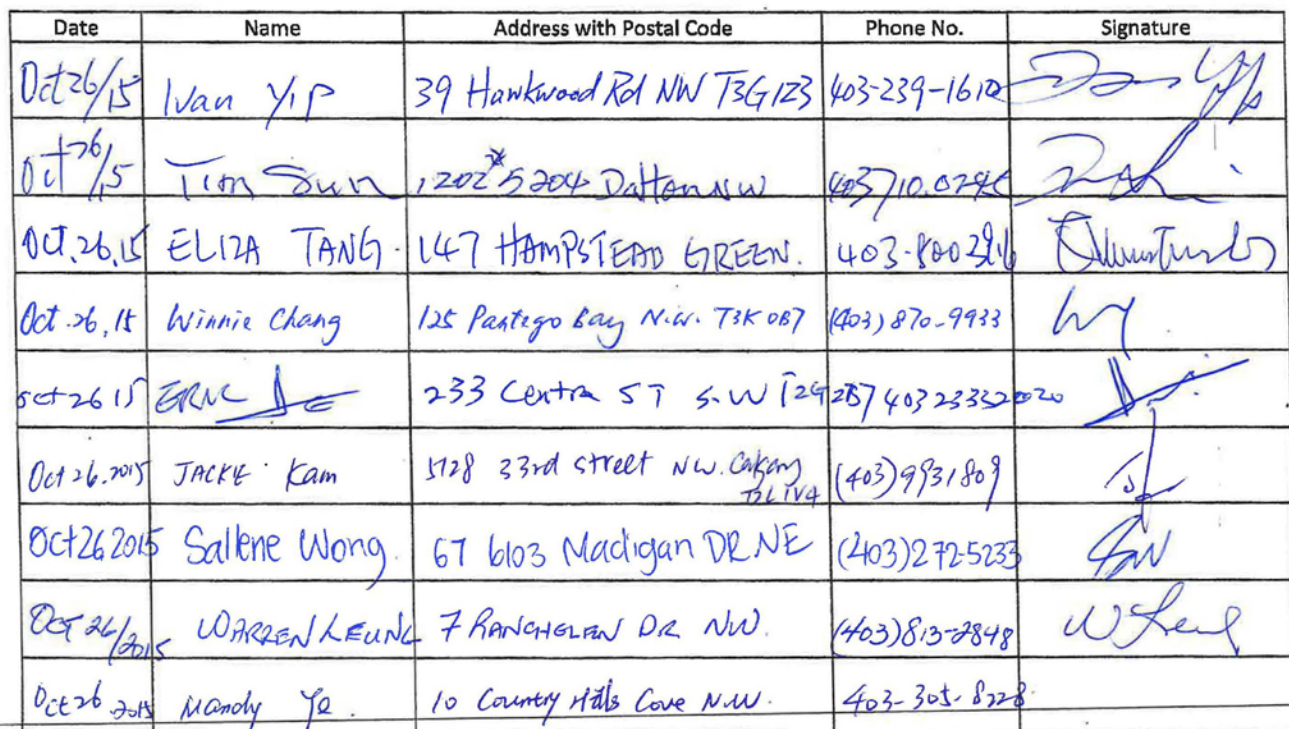 Date Name Address with Postal Code Phone No. Signature
Oct 26/15 Ivan Yip 39 Hawkwood Rd NW T3G1Z3 403-239-1610
Oct 26/15 Tim Sun 1202 5204 Dalton NW 403 710.0245
Oct.26,15 ELIZA TANG. 147 HAMPSTEAD GREEN. 403-800
Oct.26,15 Winnie Chang 125 Pantego Bay N.W. T3K 0B7 (403) 870-9933
oct 26 15 ERIC 233 Centra ST S.W T2G 2B7 403 2333
Oct 26.2015 JACKIE Kam 5128 33rd street NW. Calgary
T3L1V4 (403) 993 1809
Oct 26 2015 Sallene Wong. 67 6103 Madigan DR NE (403) 272-5233
OCT 26/2015 WARREN LEUNG 7 RANCHGLEN DR NW. (403) 813-2848 W Leung
Oct 26 2015 Mandy Ye. 10 Country Hills Cove N.W. 403-305-8228